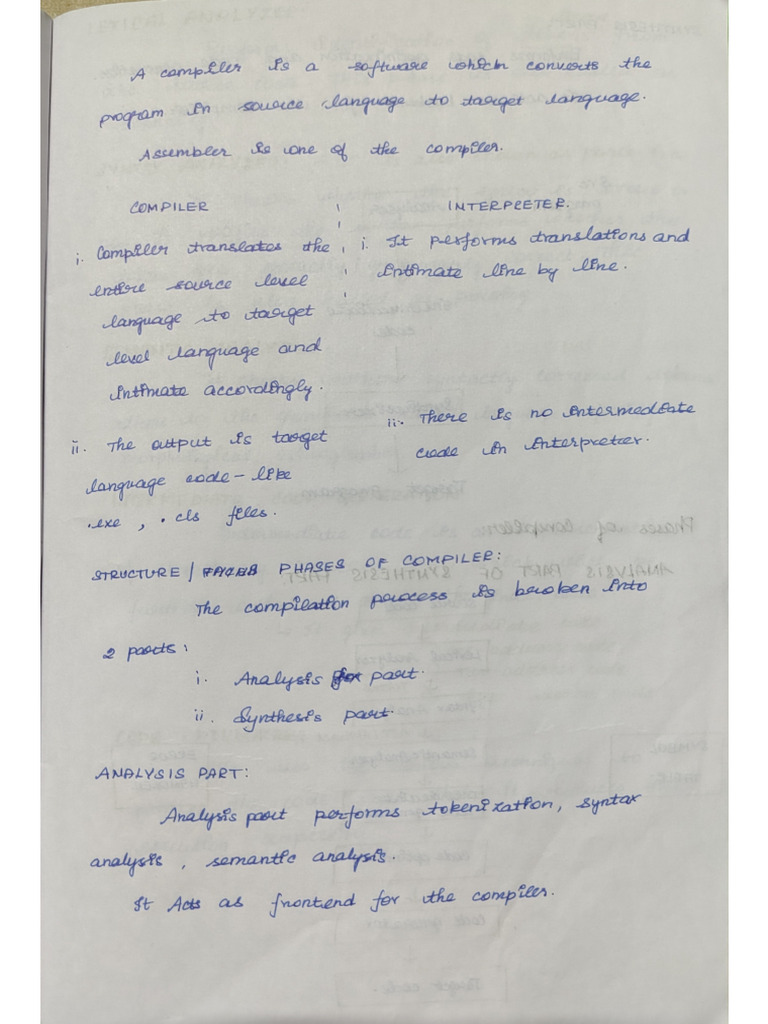 A compiler is a software which converts the
program in source language to target language.
Assembler is one of the compiler.
COMPILER
INTERPRETER.
i. Compiler translates the
entire source level
language to target
level language and
intimate accordingly.
i. It performs translations and
intimate line by line.
ii. The output is target
language code - like
.exe , . cls files.
ii. There is no intermediate
code in interpreter.
STRUCTURE / PHASES OF COMPILER:
The compilation process is broken into
2 parts:
i. Analysis part.
ii. Synthesis part.
ANALYSIS PART:
Analysis part performs tokenization, syntax
analysis , semantic analysis.
It Acts as frontend for the compiler.